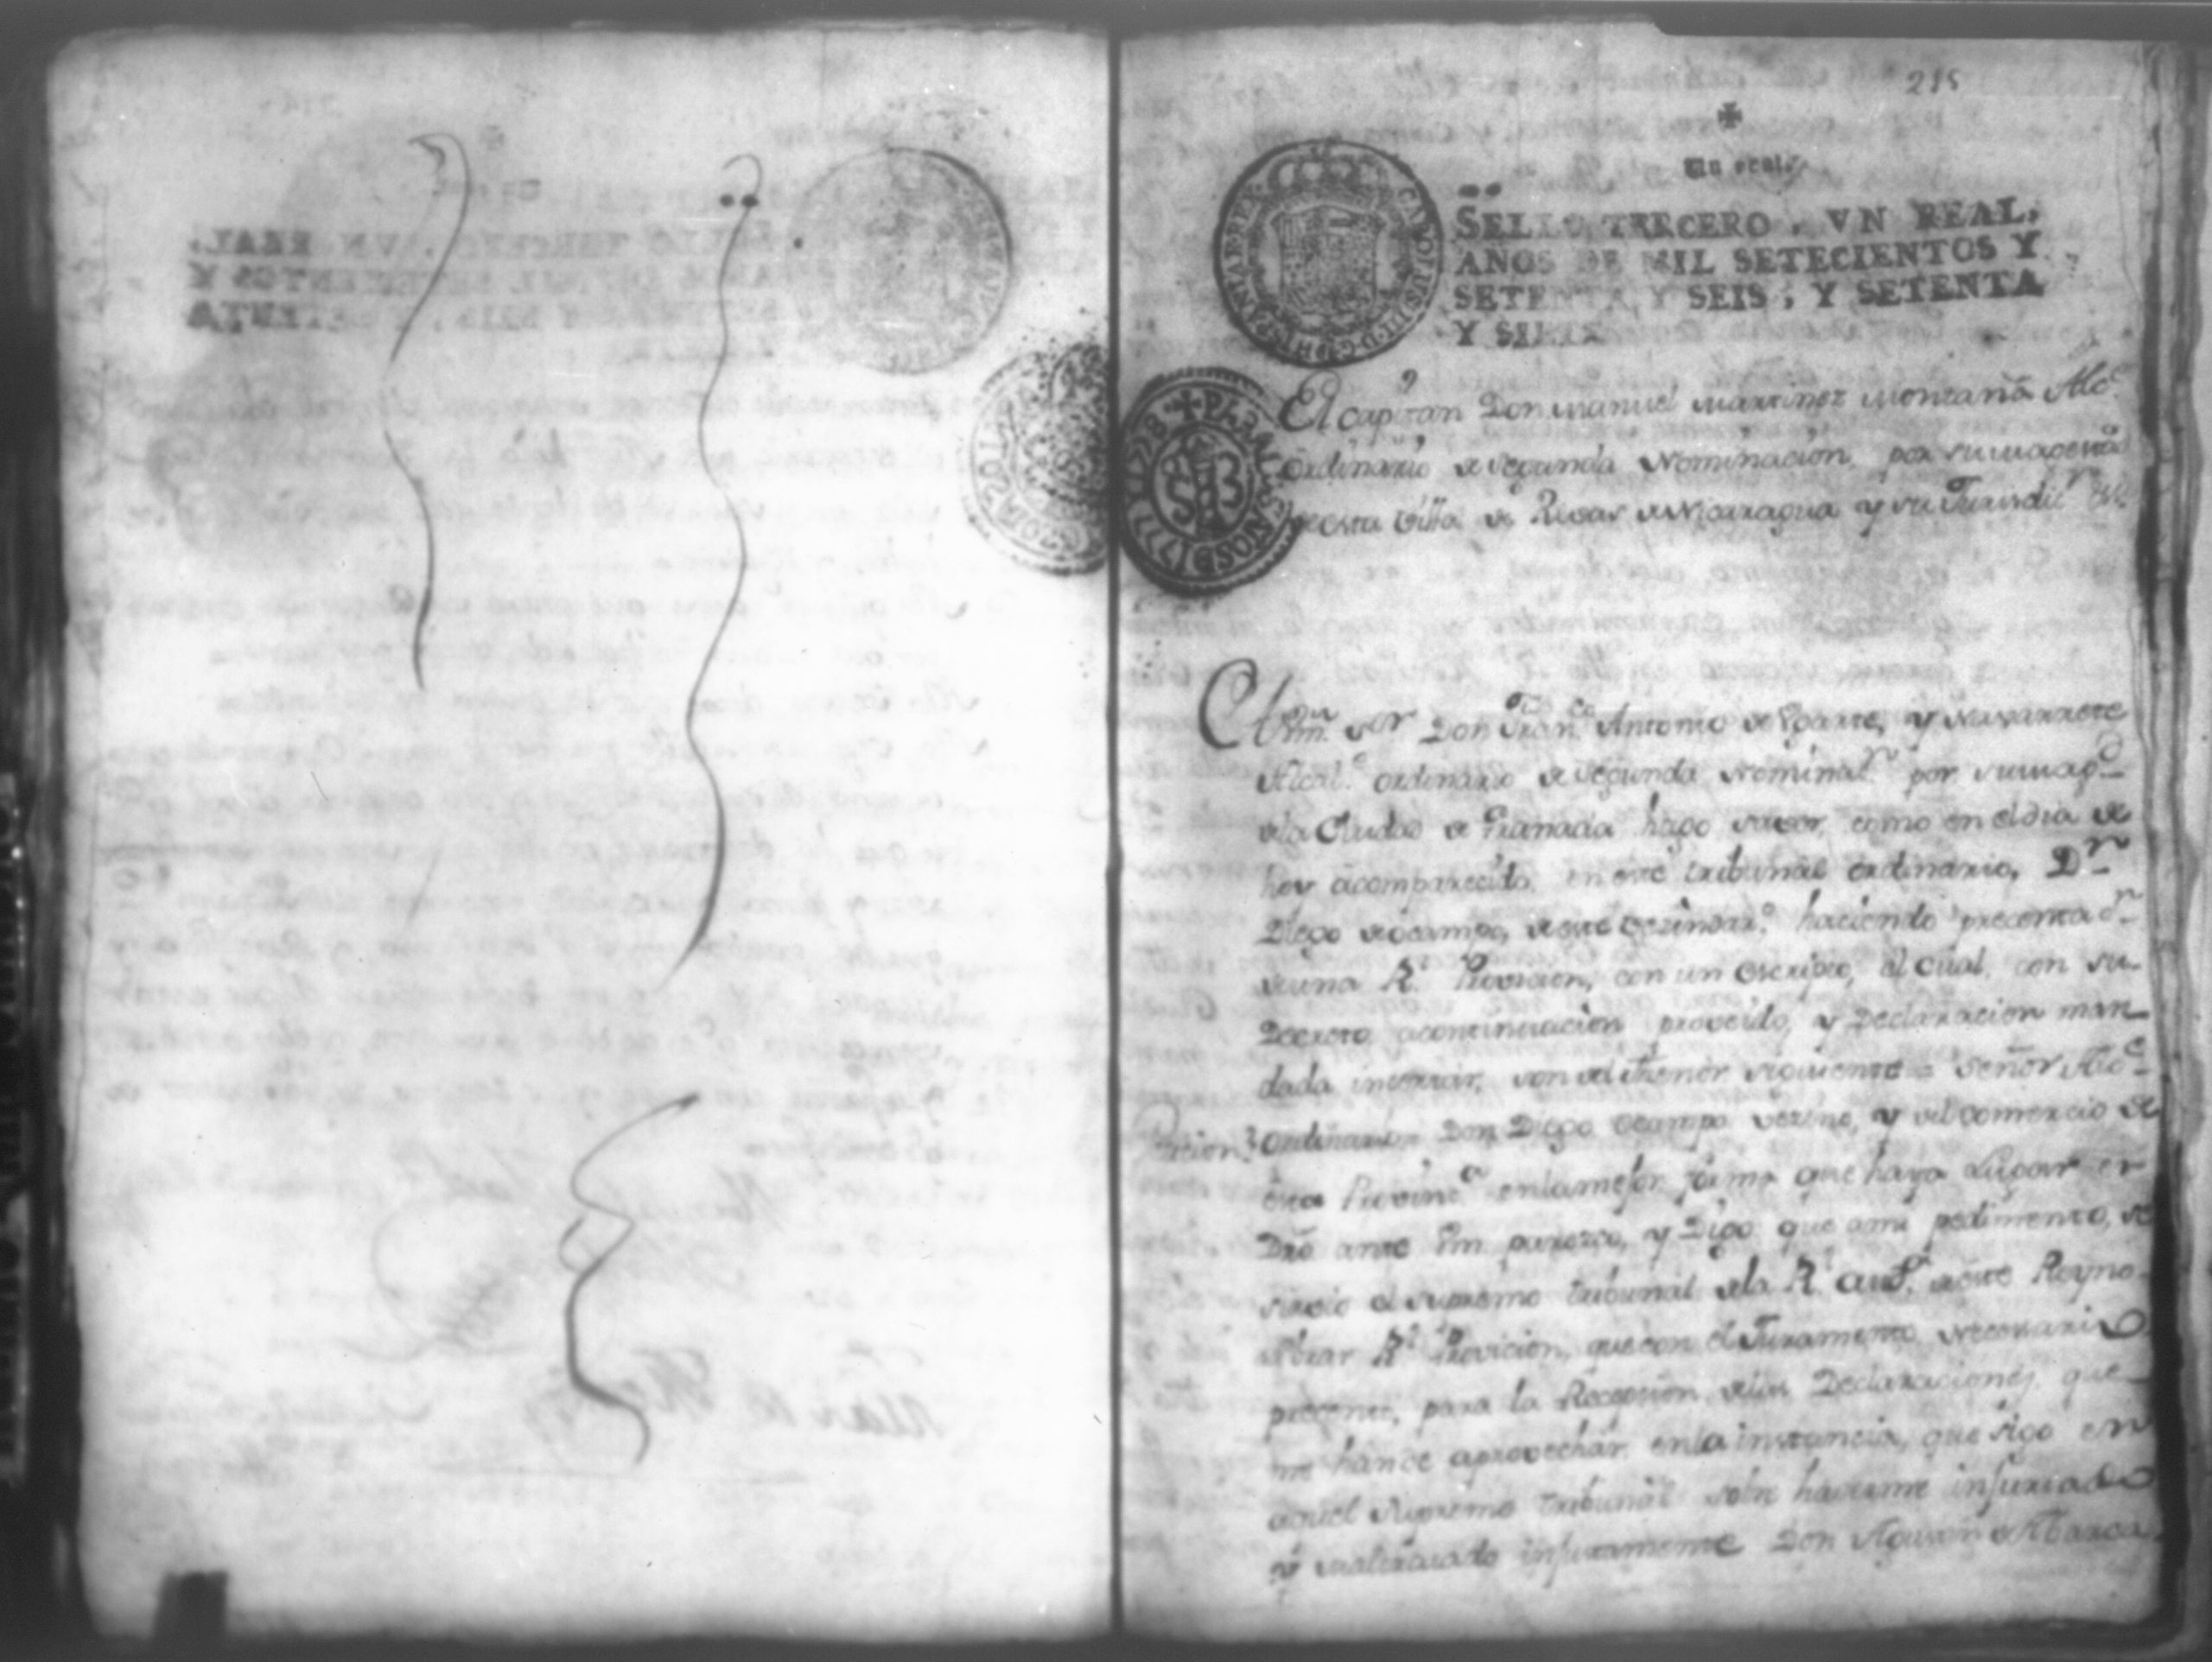 215
Un real.
SELLO TERCERO, VN REAL,
AÑOS DE MIL SETECIENTOS Y
SETENTA Y SEIS, Y SETENTA
Y SIETE
El capitan Don Manuel Martinez Montaña Alc.e
ordinario de segunda Nominacion, por su magestad
de esta Villa de Rivas de Nicaragua y su Jurisdic.n
Al Sor Don Fran.co Antonio de Ugarte, y Navarrete
Alcal.e ordinario de segunda Nominas.n por su mag.d
de la Ciudad de Granada hago saver, como en el dia de
hoy a comparecido, en este tribunal ordinario, D.n
Diego de ocampo, de este vezindar.o haciendo precenta.on
de una R.l Provicion, con un escripto, el cual, con su
Decreto acontinuacion proveido, y Declaracion man-
dada incertar, son del thenor siguiente = Señor Alc.e
ordinario Don Diego Ocampo vezino, y del comercio de
esta Provinc.a en la mejor forma que haya Lugar en
Dro ante Vm parezco, y Digo que ami pedimento, se
sirvio el supremo tribunal de la R.l aud.a de este Reyno
librar R.l Provicion, que con el Juramento necesario
presento, para la Recepcion de las Declaraciones, que
me han de aprovechar en la instancia, que sigo en
aquel supremo tribunal sobre haverme injuriado
y maltratado injustamente Don Agustin de Abarca